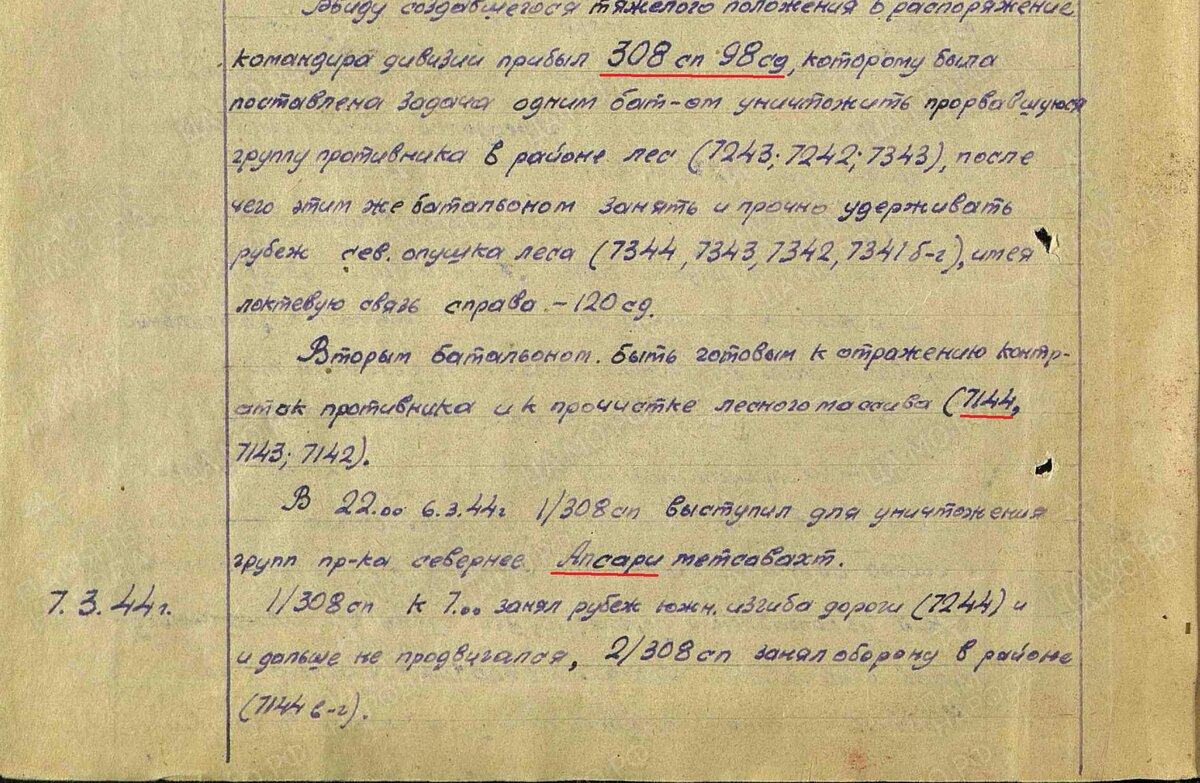 Ввиду создавшегося тяжелого положения в распоряжение
командира дивизии прибыл 308 сп 98 сд, которому была
поставлена задача одним бат-ом уничтожить прорвавшуюся
группу противника в районе лес (7243; 7242; 7343), после
чего этим же батальоном занять и прочно удерживать
рубеж сев. опушка леса (7344, 7343, 7342, 7341 б-г), имея
локтевую связь справа - 120 сд.
Вторым батальоном. быть готовым к отражению контр-
атак противника и к прочистке лесного массива (7144,
7143; 7142).
В 22.00 6.3.44г 1/308 сп выступил для уничтожения
групп пр-ка севернее Апсари метсавахт.
7.3.44г. 1/308 сп к 7.00 занял рубеж южн. изгиба дороги (7244) и
и дальше не продвигался, 2/308 сп занял оборону в районе
(7144 в-г).